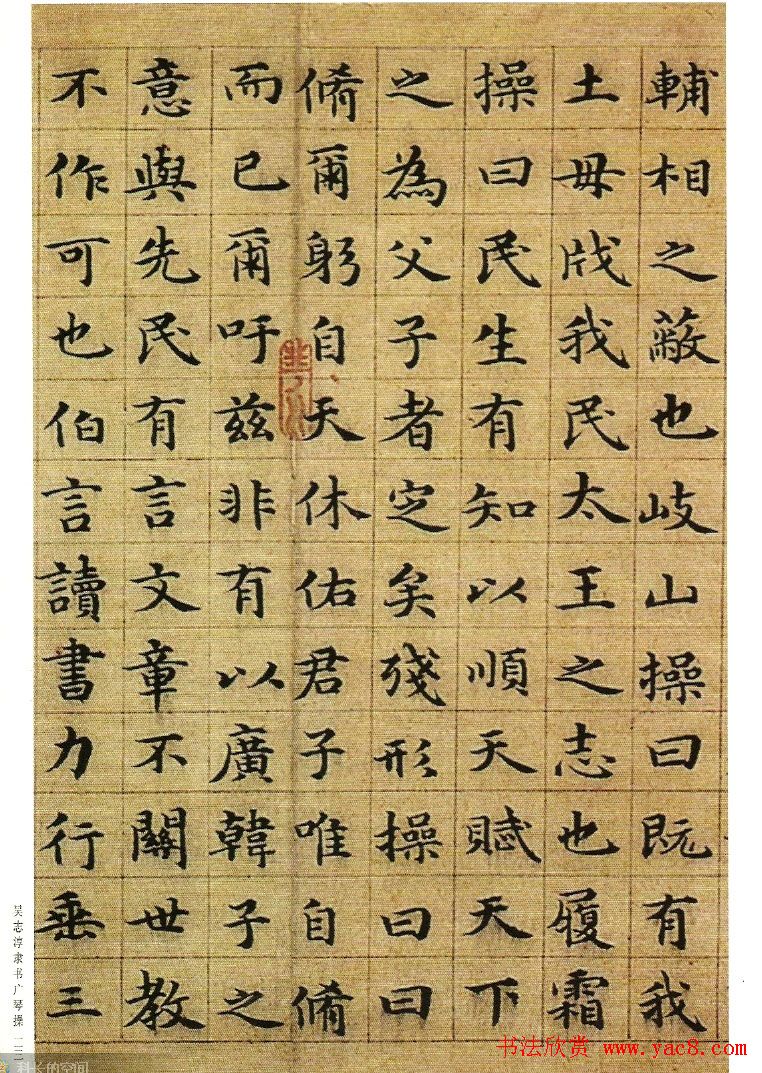 輔相之蔽也岐山操曰既有我
土毋戕我民太王之志也履霜
操曰民生有知以順天賦天下
之為父子者定矣殘形操曰曰
脩爾躬自天休佑君子唯自脩
而已爾吁茲非有以廣韓子之
意與先民有言文章不關世教
不作可也伯言讀書力行垂三
吴志淳隶书广琴操
书法欣赏 www.yac8.com
科长的空间